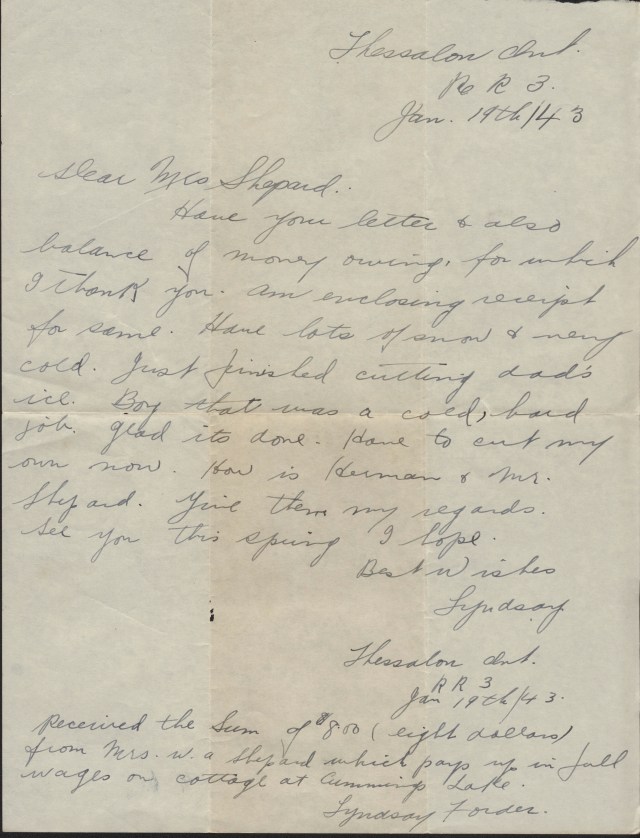 Thessalon Ont.
R R 3.
Jan. 19th/43
Dear Mrs Shepard.
Have your letter & also
balance of money owing, for which
I thank you. Am enclosing receipt
for same. Have lots of snow & very
cold. Just finished cutting dad's
ice. Boy that was a cold, hard
job. glad its done. Have to cut my
own now. How is Herman & Mr.
Shepard. Give them my regards.
See you this spring I hope.
Best Wishes
Lyndsay
Thessalon Ont.
R R 3
Jan 19th/43.
Received the Sum of $8.00 (eight dollars)
from Mrs. W. A Shepard which pays up in full
wages on cottage at Cummings Lake.
Lyndsay Forder.